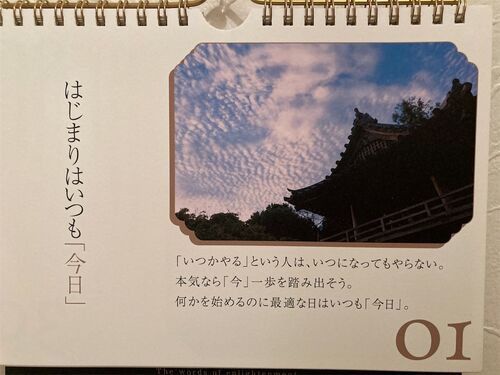 はじまりはいつも「今日」
「いつかやる」という人は、いつになってもやらない。
本気なら「今」一歩を踏み出そう。
何かを始めるのに最適な日はいつも「今日」。
01
The words of enlightenment